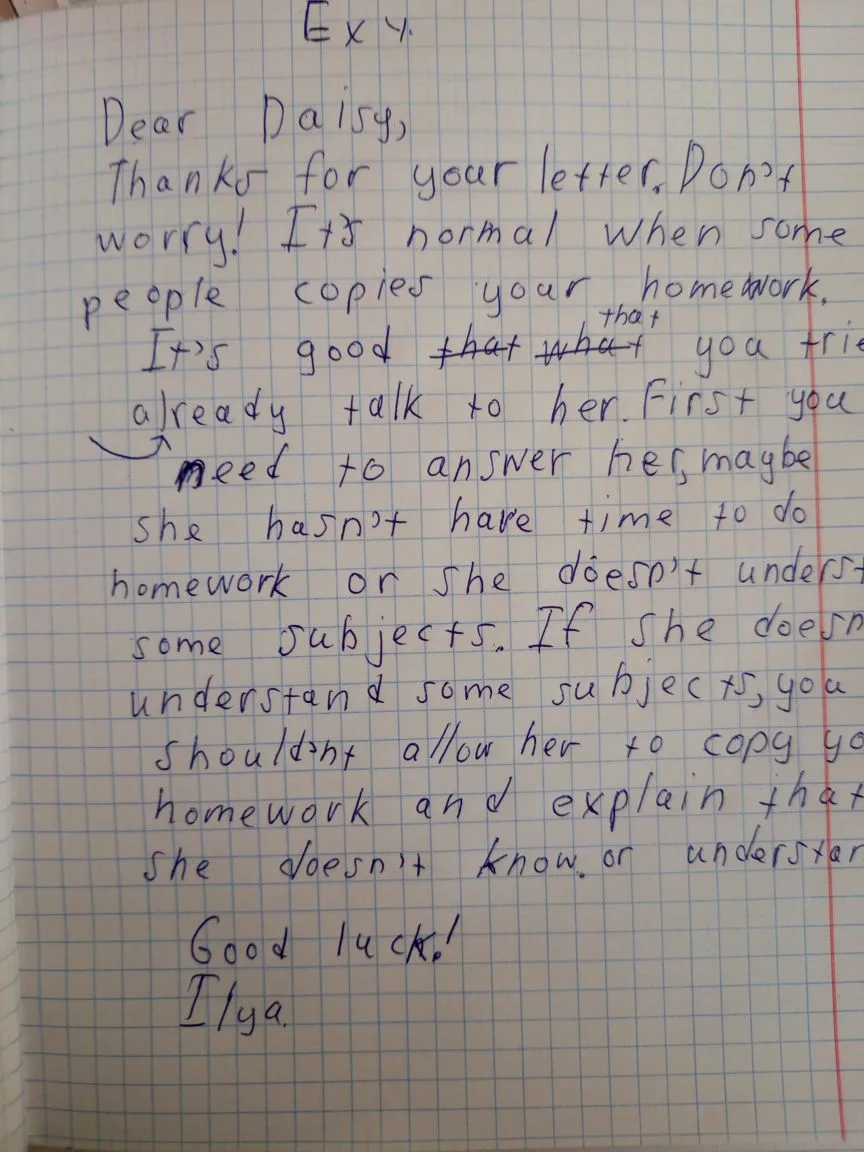 Ex 4.
Dear Daisy,
Thanks for your letter. Don't
worry! It's normal when some
people copies your homework.
that
It's good that what you trie
already talk to her. First you
need to answer her, maybe
she hasn't have time to do
homework or she doesn't underst
some subjects. If she doesn
understand some subjects, you
should'nt allow her to copy yo
homework and explain that
she doesn't know. or understan
Good luck!
Ilya.